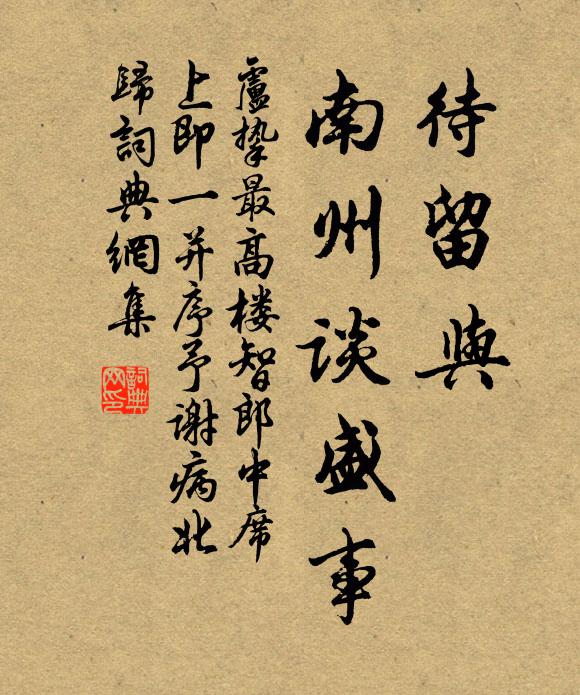 待留與
南州談盛事
盧摯最高楼智郎中席
上即一并序予谢病北
歸詞典網集
詞典
网印